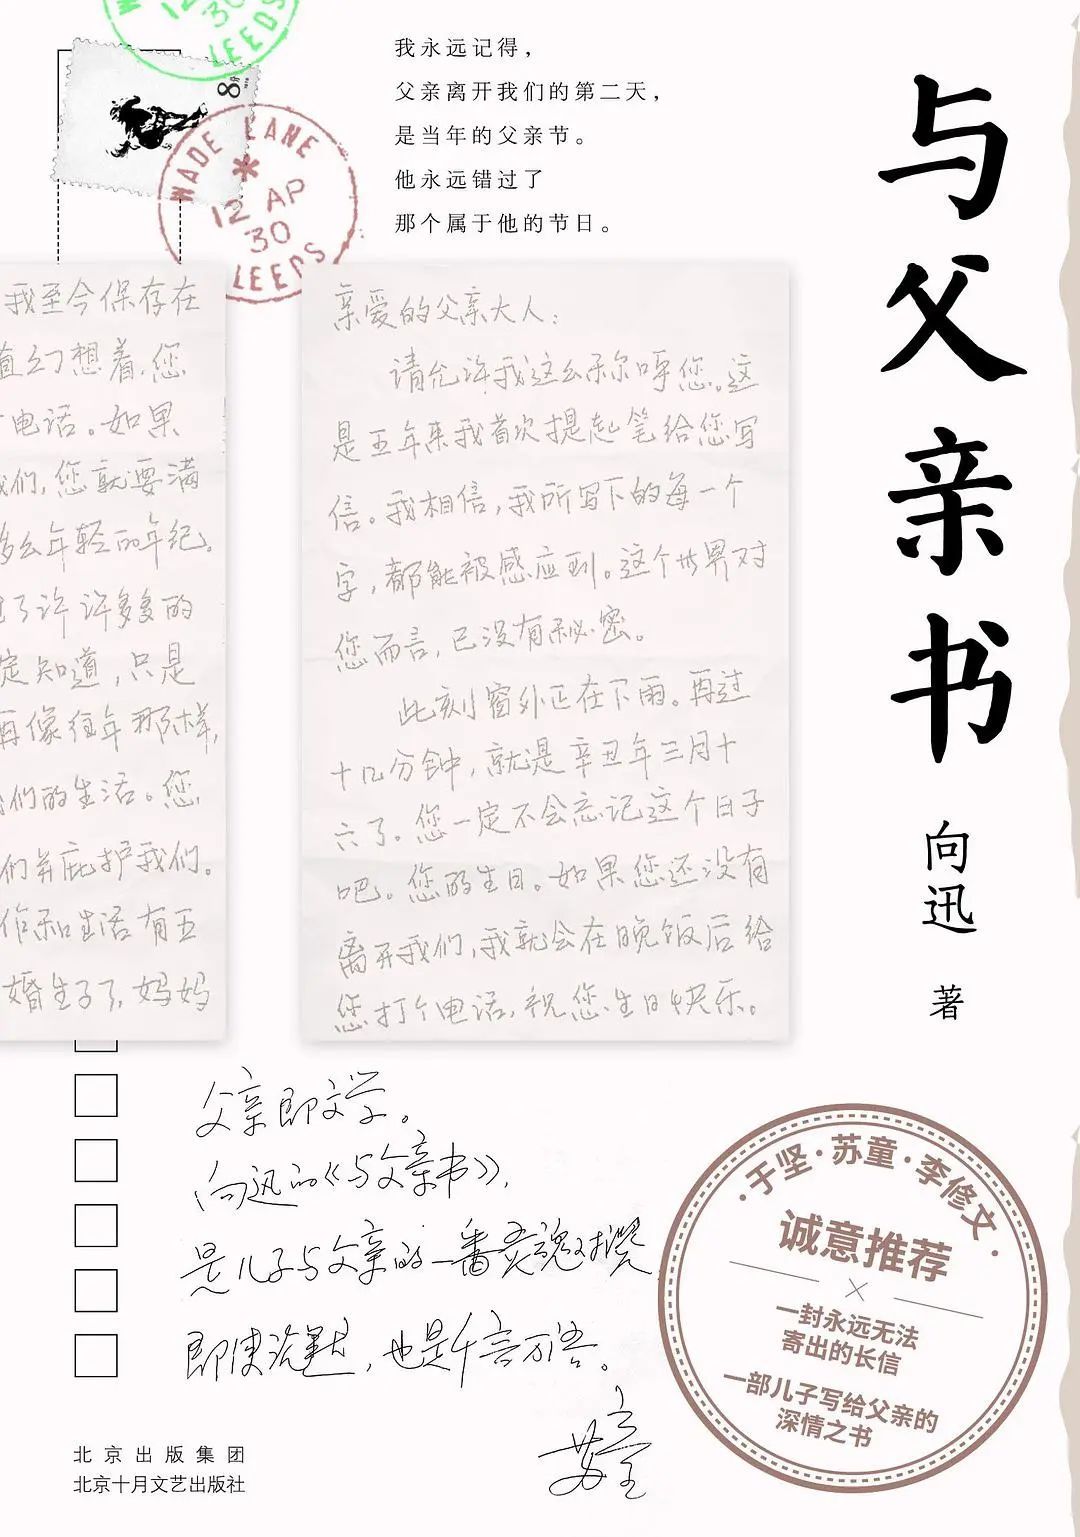 我永远记得，
父亲离开我们的第二天，
是当年的父亲节。
他永远错过了
那个属于他的节日。
与父亲书
向迅
著
12 AP
30
LEEDS
8
WADE LANE
12 AP
30
LEEDS
我至今保存在
直幻想着，您
电话。如果
我们，您就要满
多么年轻的年纪。
了许许多多的
定知道，只是
再像往年那样，
我们的生活。您
们并庇护我们。
作和生活有五
婚生子了，妈妈
亲爱的父亲大人：
请允许我这么称呼您。这
是五年来我首次提起笔给您写
信。我相信，我所写下的每一个
字，都能被感应到。这个世界对
您而言，已没有秘密。
此刻窗外正在下雨。再过
十几分钟，就是辛丑年三月十
六了。您一定不会忘记这个日子
吧。您的生日。如果您还没有
离开我们，我就会在晚饭后给
您打个电话，祝您生日快乐。
父亲即文学。
向迅的《与父亲书》，
是儿子与父亲的一番灵魂对撰
即使沉默，也是千言万语。
苏童
于坚·苏童·李修文
诚意推荐
一封永远无法
寄出的长信
一部儿子写给父亲的
深情之书
北京出版集团
北京十月文艺出版社